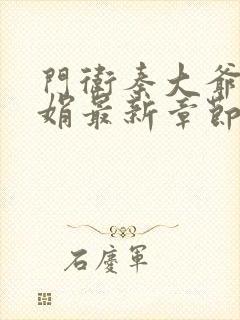 門衛秦大爺
娟最新章節
石慶軍